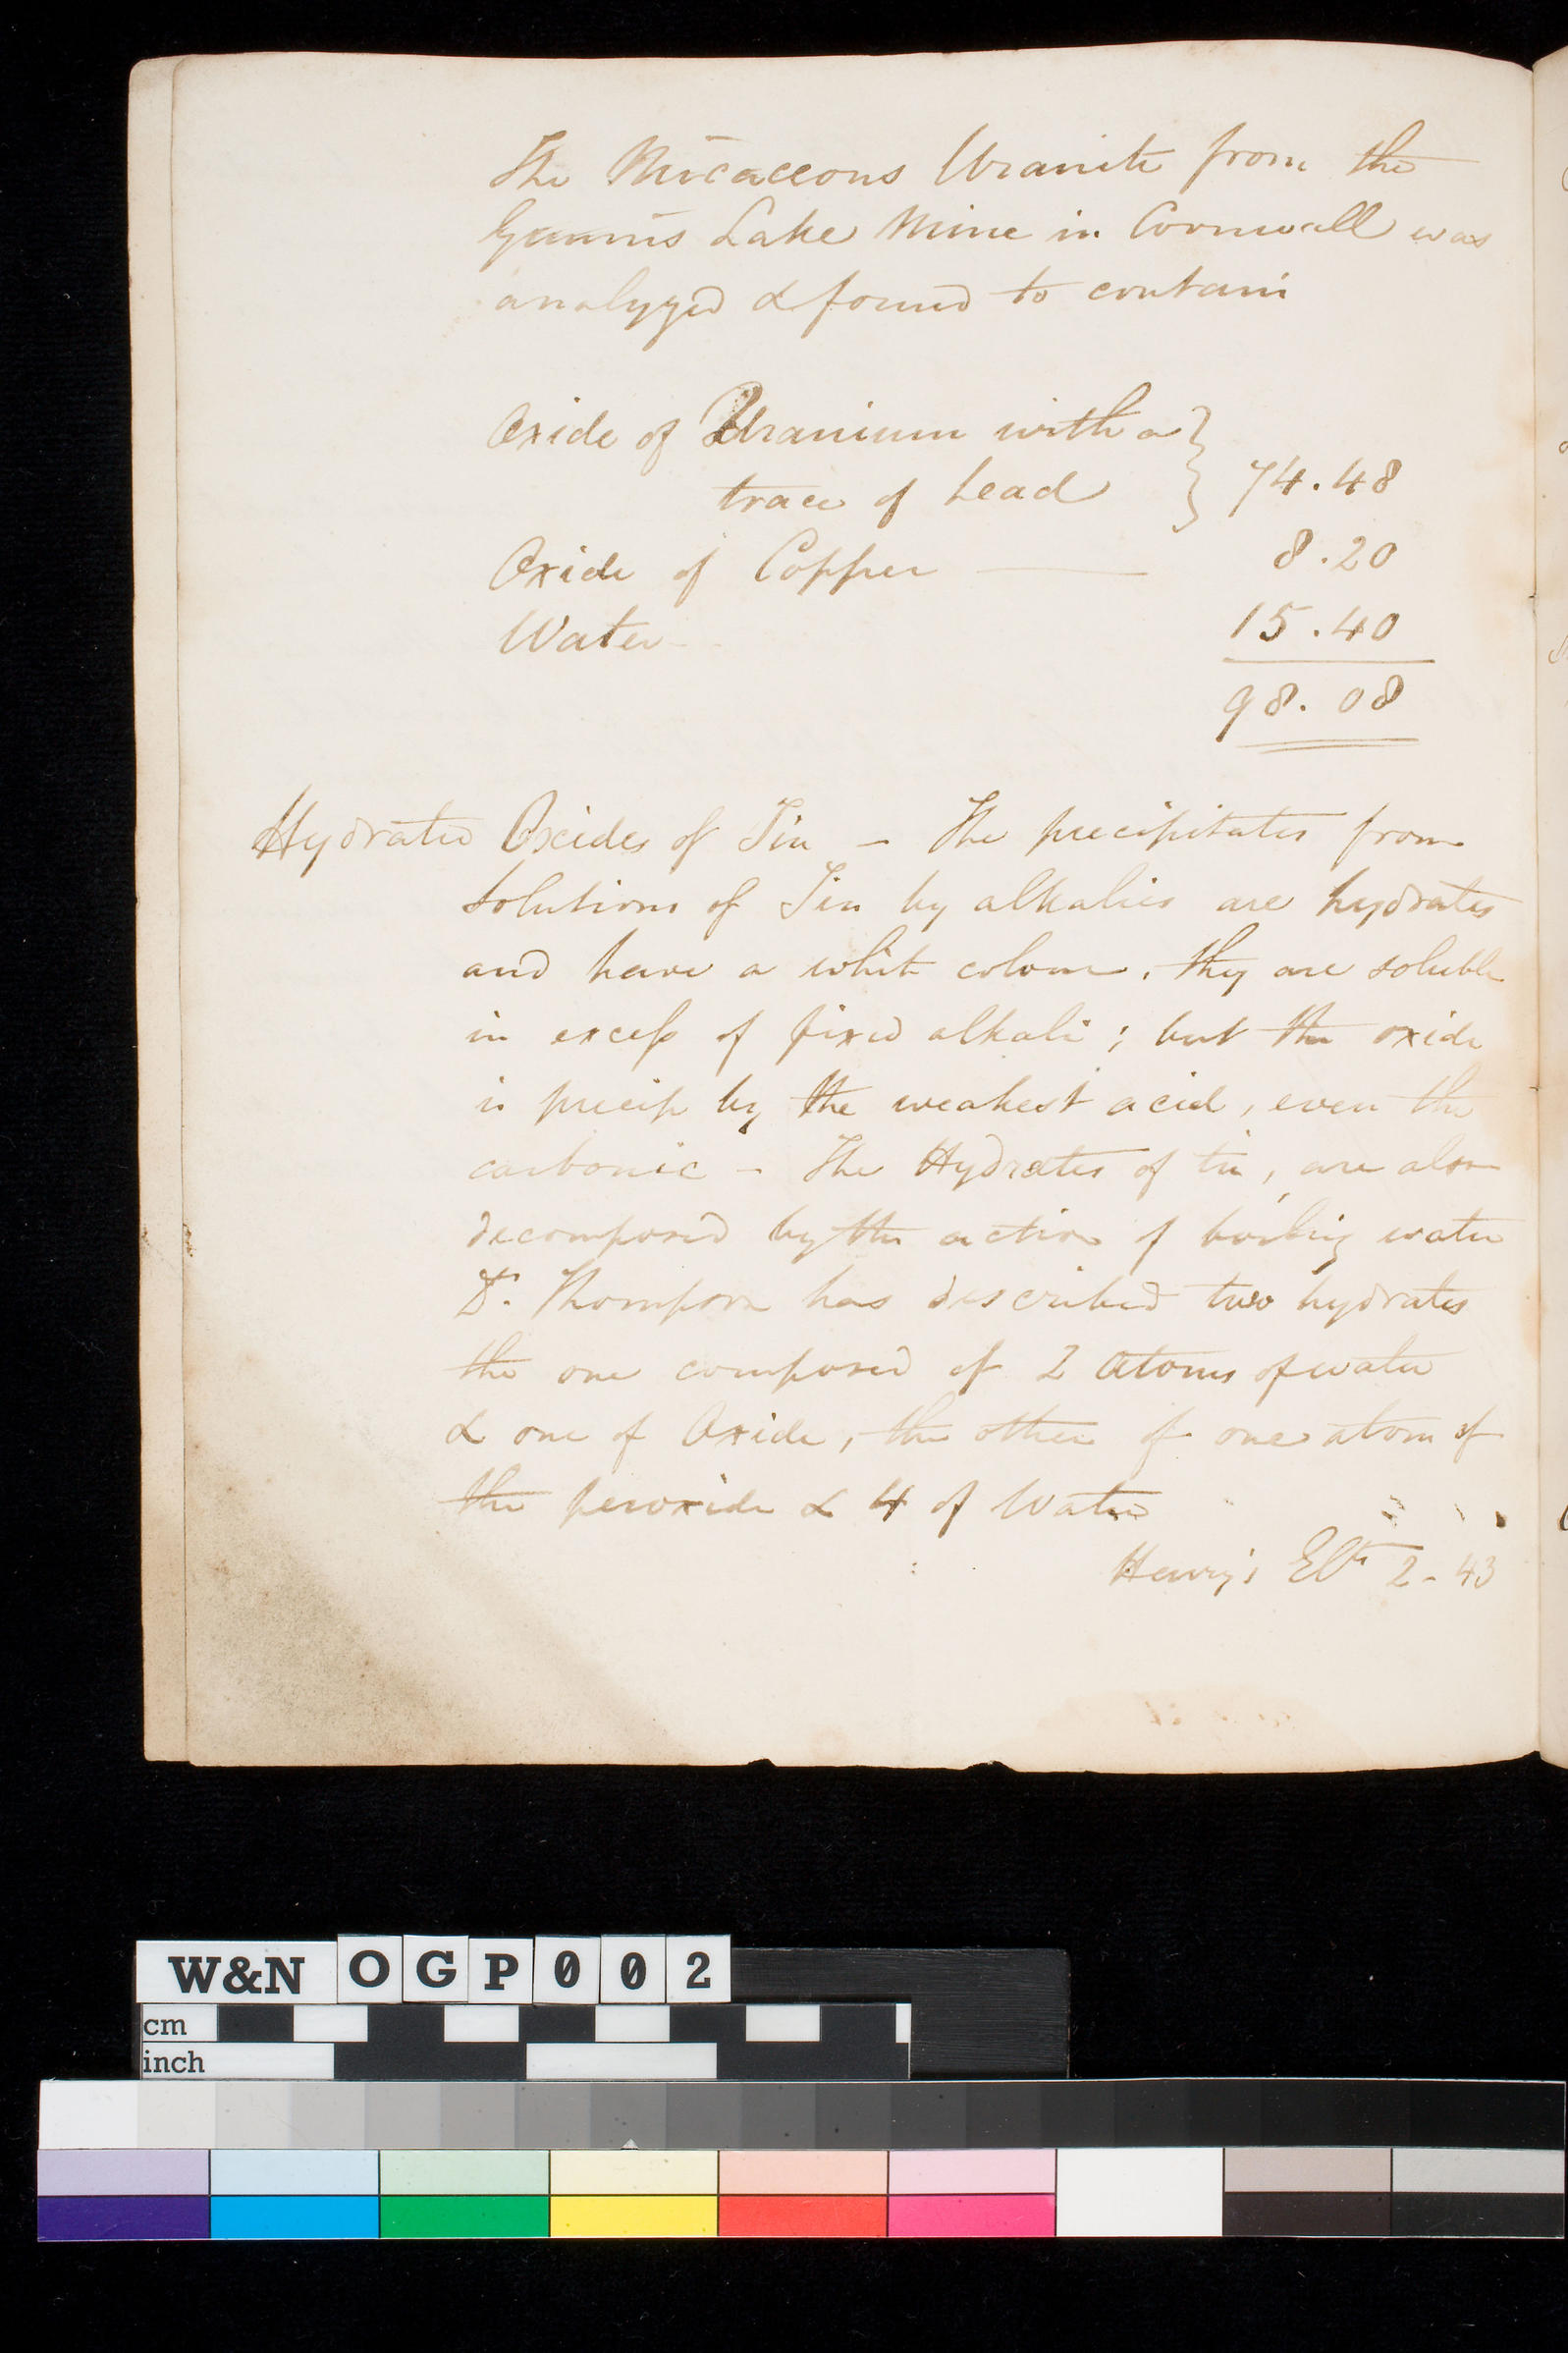 The Micaceous Uranite from the
Gunnis Lake Mine in Cornwall was
analyzed & found to contain
Oxide of Uranium with a
trace of Lead } 74.48
Oxide of Copper — 8.20
Water 15.40
98.08
Hydrated Oxides of Tin – The precipitates from
Solutions of Tin by alkalies are hydrates
and have a white colour. they are soluble
in excess of fixed alkali; but the oxide
is precip by the weakest acid, even the
carbonic – The Hydrates of tin, are also
decomposed by the action of boiling water
Dr. Thompson has described two hydrates
the one composed of 2 atoms of water
& one of Oxide, the other of one atom of
the peroxide & 4 of Water
Henry's Elts 2-43
W&N OGP002
cm
inch